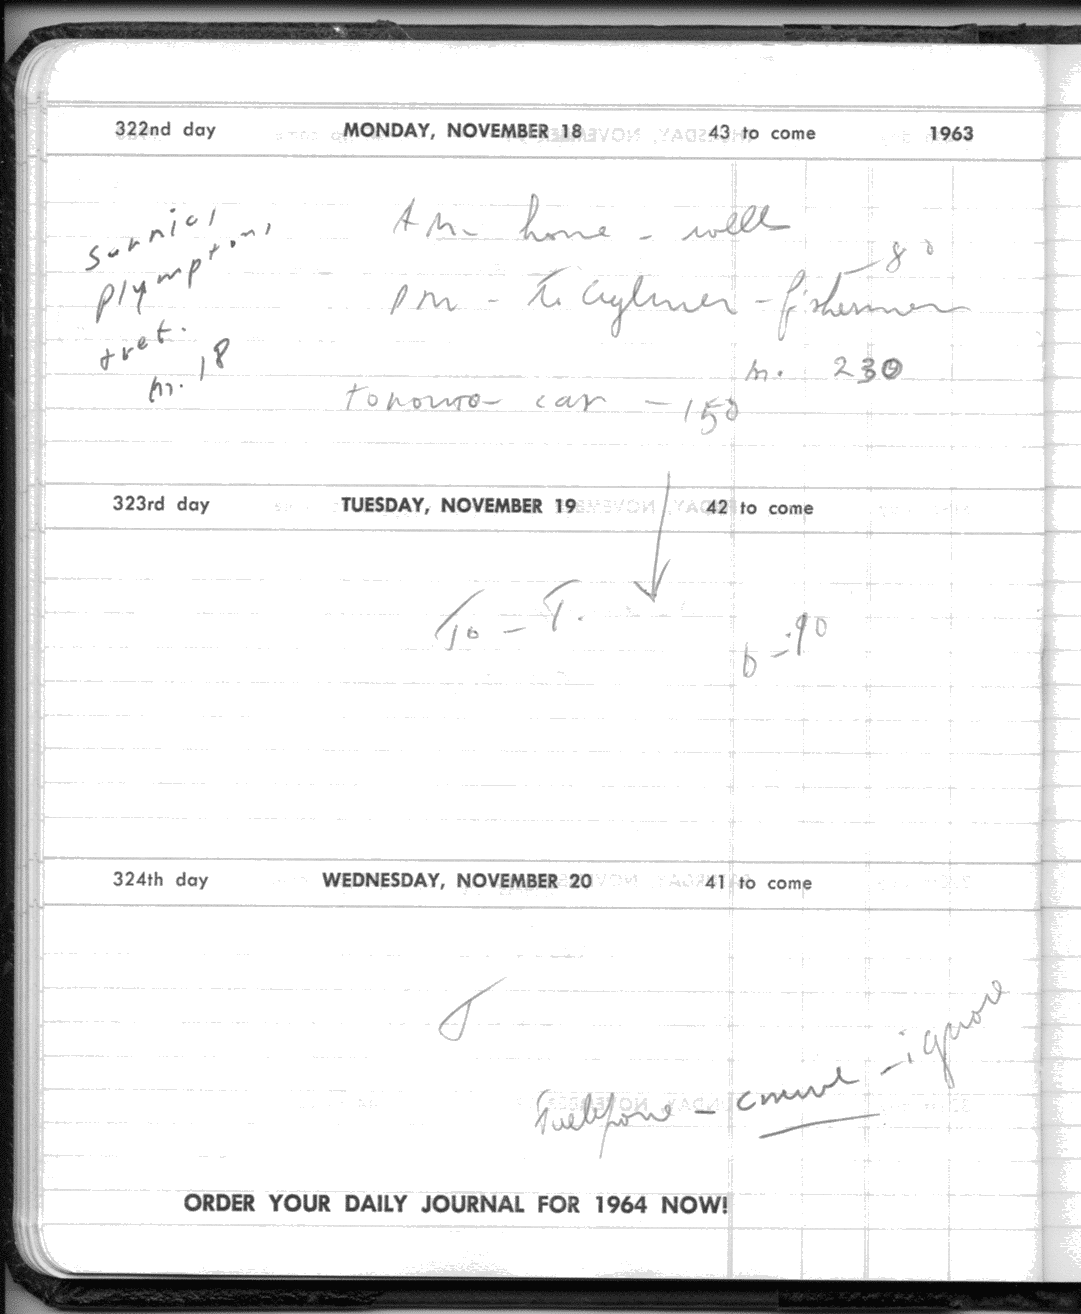 322nd day MONDAY, NOVEMBER 18 43 to come 1963
AM - home - well
plymptons,
80
PM - To - fishermen
tret.
m. 18
m. 230
tomorrow car - 150
323rd day TUESDAY, NOVEMBER 19 42 to come
To - T.
6 - 90
324th day WEDNESDAY, NOVEMBER 20 41 to come
- ignore
ORDER YOUR DAILY JOURNAL FOR 1964 NOW!